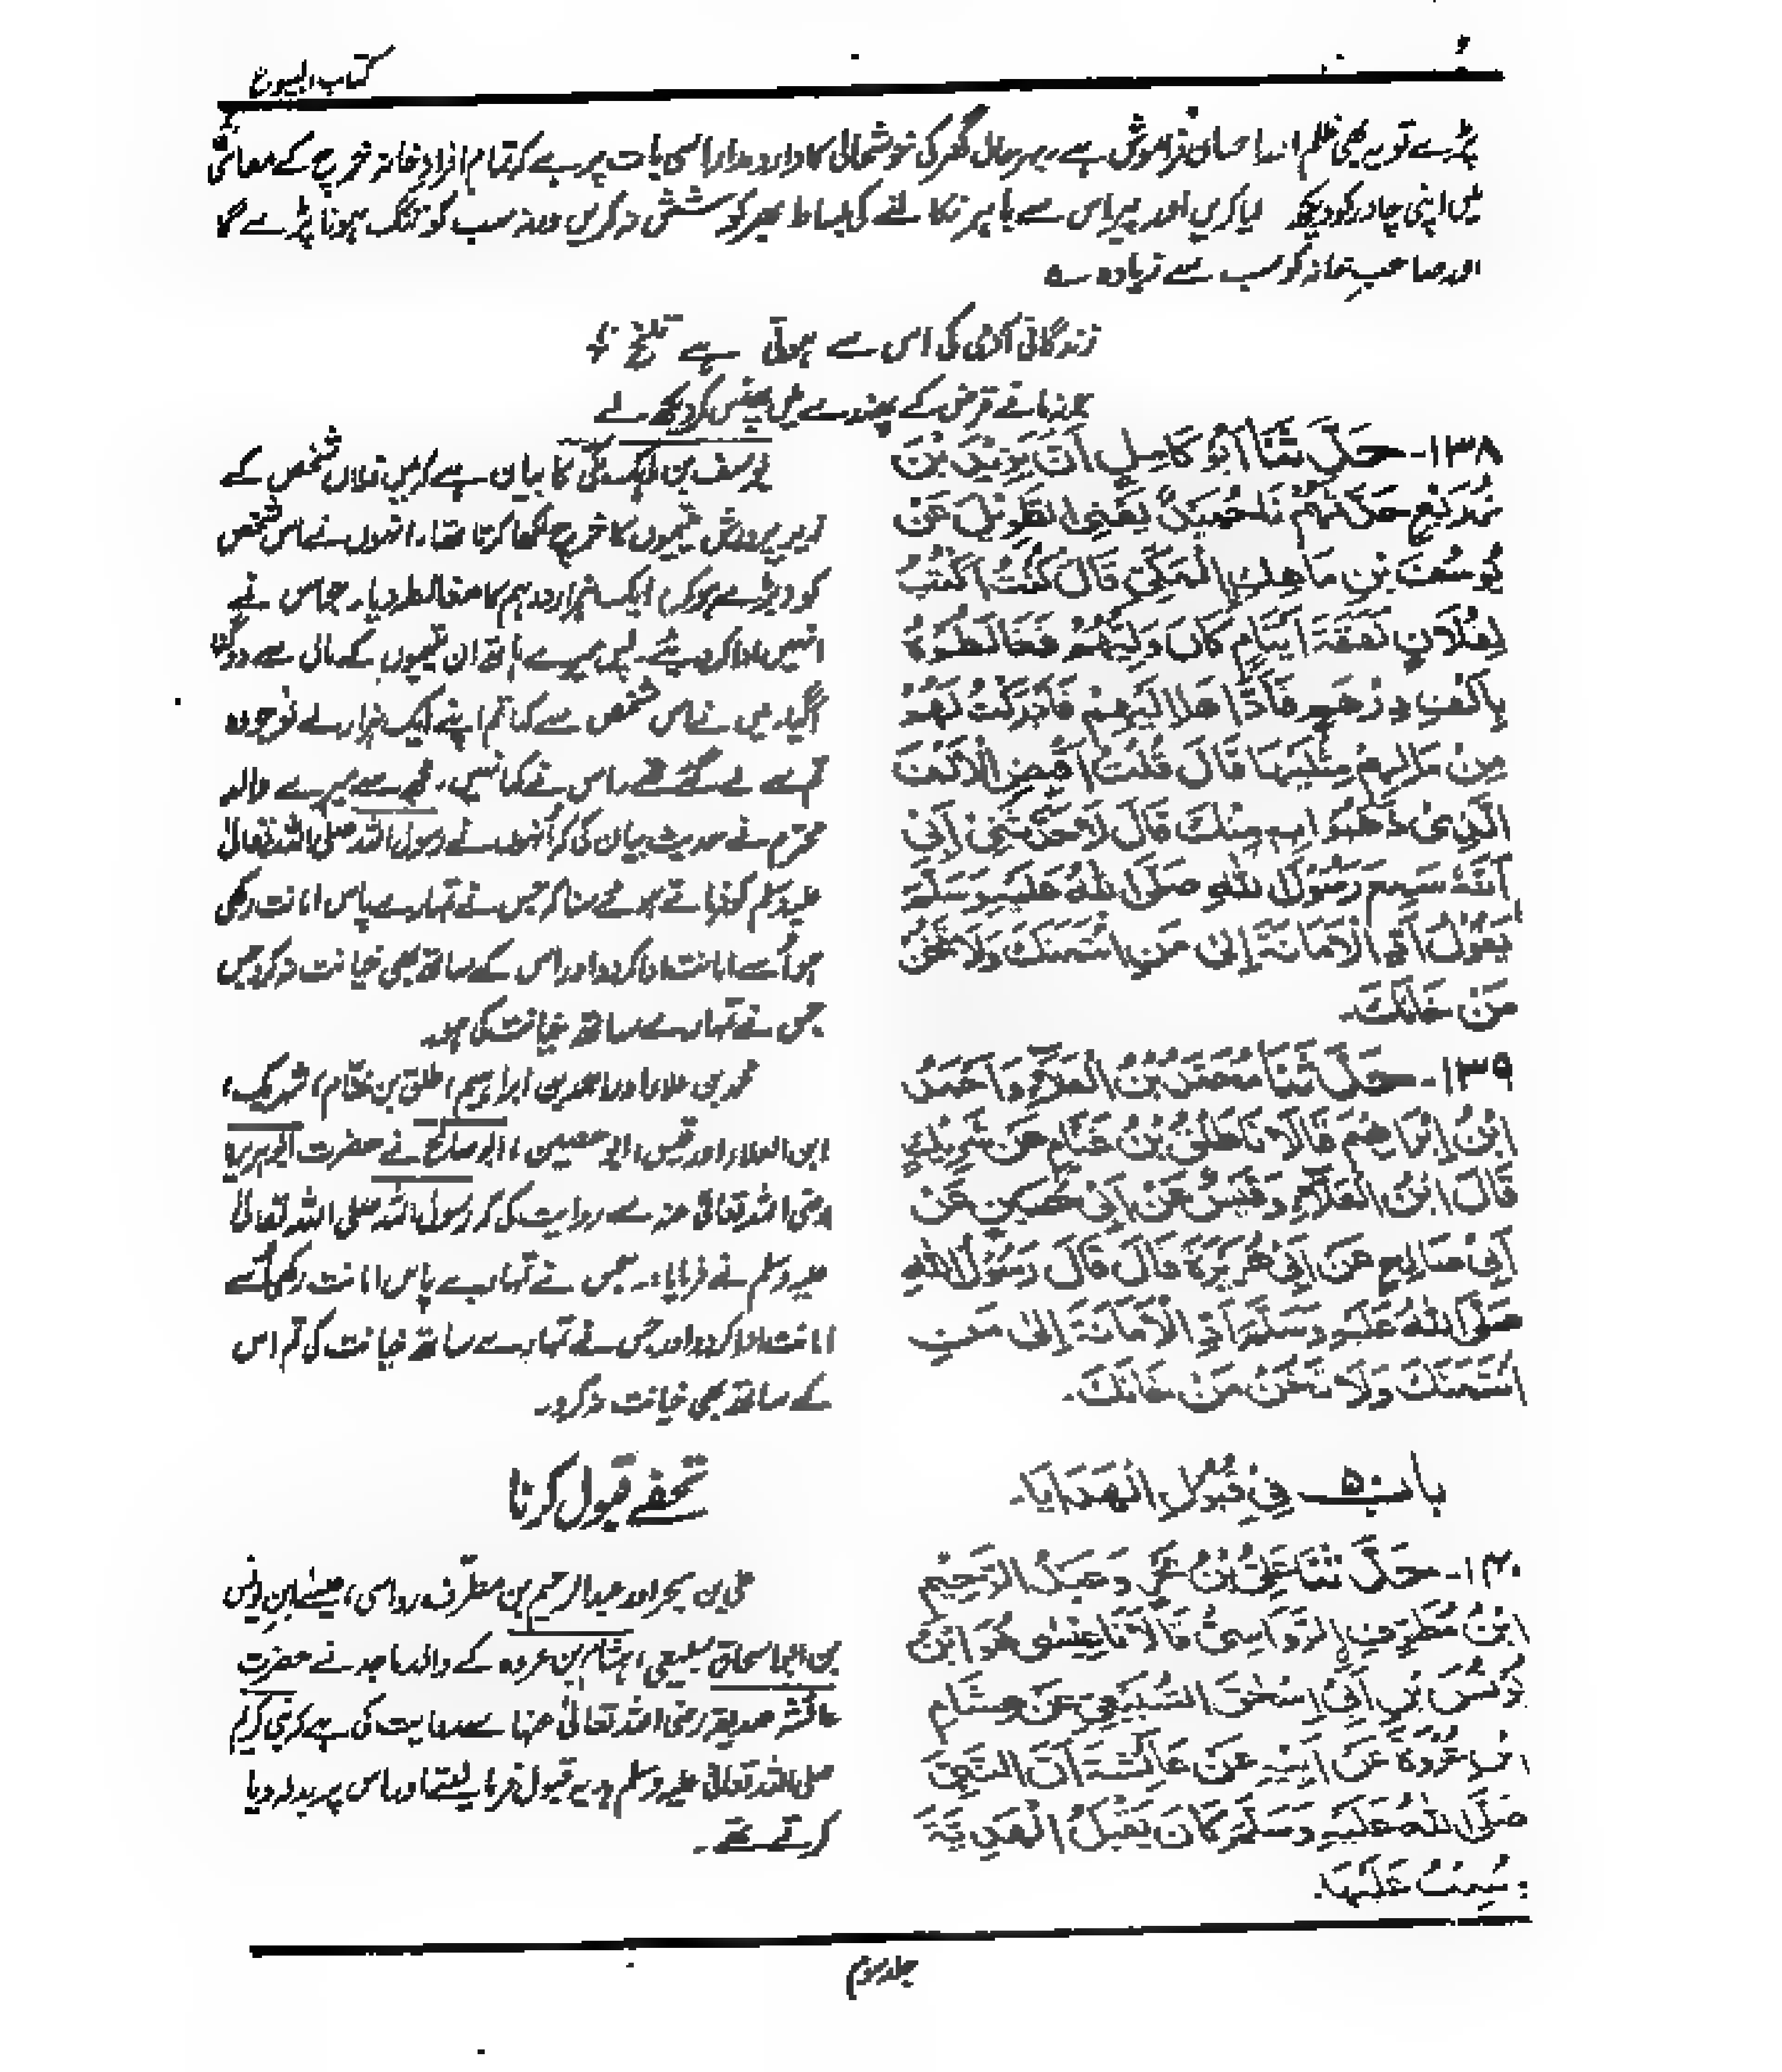 کتاب البیوع
پڑے تو یہ بھی ظلم اور احسان فراموش ہے۔ بہرحال گھر کی خوشحالی کا دارومدار اسی بات پر ہے کہ تمام افرادِ خانہ خرچ کے معاملے
میں اپنی چادر کو دیکھ لیا کریں اور پیر اس سے باہر نکالنے کی بساط بھر کوشش نہ کریں ورنہ سب کو تنگ ہونا پڑے گا
اور صاحبِ خانہ کو سب سے زیادہ ؎
زندگانی آدمی کی اس سے ہوتی ہے تلخ
قرض کے پھندے میں پھنس کر دیکھ لے
۱۳۸- حَدَّثَنَا اَبُوْ كَامِلٍ اَنَّ يَزِيْدَ بْنَ
زُرَيْعٍ حَدَّثَهُمْ نَا حُمَيْدٌ يَعْنِي الطَّوِيْلَ عَنْ
يُوْسُفَ بْنِ مَاهِكٍ الْمَكِّيِّ قَالَ كُنْتُ اَكْتُبُ
لِفُلَانٍ نَفَقَةَ اَيْتَامٍ كَانَ وَلِيَّهُمْ فَغَالَطُوْهُ
بِاَلْفِ دِرْهَمٍ فَاَدَّاهَا اِلَيْهِمْ فَاَدْرَكْتُ لَهُمْ
مِنْ مَالِهِمْ مِثْلَيْهَا قَالَ قُلْتُ اَقْبِضُ الْاَلْفَ
الَّذِيْ ذَهَبُوْا بِهِ مِنْكَ قَالَ لَا حَدَّثَنِيْ اَبِيْ
اَنَّهُ سَمِعَ رَسُوْلَ اللهِ صَلَّى اللهُ عَلَيْهِ وَسَلَّمَ
يَقُوْلُ اَدِّ الْاَمَانَةَ اِلَى مَنِ ائْتَمَنَكَ وَلَا تَخُنْ
مَنْ خَانَكَ۔
یوسف بن ماہک مکی کا بیان ہے کہ میں فلاں شخص کے
زیرِ پرورش یتیموں کا خرچ لکھا کرتا تھا۔ انہوں نے اس شخص
کو بڑے ہو کر ایک ہزار درہم کا مغالطہ دیا۔ جو اس نے
انہیں ادا کر دیئے۔ پس میرے ہاتھ ان یتیموں کے مال سے دوگنا
آگیا۔ میں نے اس شخص سے کہا تم اپنے ایک ہزار لے لو جو وہ
تم سے لے گئے تھے۔ اس نے کہا نہیں۔ مجھ سے میرے والد
محترم نے حدیث بیان کی کہ اُنہوں نے رسول اللہ صلی اللہ تعالیٰ
علیہ وسلم کو فرماتے ہوئے سنا کہ جس نے تمہارے پاس امانت رکھی
ہو اُسے امانت ادا کردو اور اس کے ساتھ بھی خیانت نہ کرو جس
جس نے تمہارے ساتھ خیانت کی ہو۔
۱۳۹- حَدَّثَنَا مُحَمَّدُ بْنُ الْعَلَاءِ وَاَحْمَدُ
ابْنُ اِبْرَاهِيْمَ قَالَا نَا طَلْقُ بْنُ غَنَّامٍ عَنْ شَرِيْكٍ
قَالَ ابْنُ الْعَلَاءِ وَقَيْسٌ عَنْ اَبِيْ حُصَيْنٍ عَنْ
اَبِيْ صَالِحٍ عَنْ اَبِيْ هُرَيْرَةَ قَالَ قَالَ رَسُوْلُ اللهِ
صَلَّى اللهُ عَلَيْهِ وَسَلَّمَ اَدِّ الْاَمَانَةَ اِلَى مَنِ
ائْتَمَنَكَ وَلَا تَخُنْ مَنْ خَانَكَ۔
محمد بن علاء اور احمد بن ابراہیم، طلق بن غنام، شریک،
ابن العلاء اور قیس، ابو حصین، ابو صالح نے حضرت ابوہریرہ
رضی اللہ تعالیٰ عنہ سے روایت کی کہ رسول اللہ صلی اللہ تعالیٰ
علیہ وسلم نے فرمایا:۔ جس نے تمہارے پاس امانت رکھی اُسے
امانت ادا کردو اور جس نے تمہارے ساتھ خیانت کی تم اس
کے ساتھ بھی خیانت نہ کرو۔
باب ۵۰ فِيْ قَبُوْلِ الْهَدَايَا۔
تحفے قبول کرنا
۱۴۰- حَدَّثَنَا عَلِيُّ بْنُ بَحْرٍ وَعَبْدُ الرَّحِيْمِ
ابْنُ مُطَرِّفٍ الرُّوَاسِيُّ قَالَا نَا عِيْسٰى هُوَ ابْنُ
يُوْنُسَ بْنِ اَبِيْ اِسْحٰقَ السَّبِيْعِيُّ عَنْ هِشَامِ
ابْنِ عُرْوَةَ عَنْ اَبِيْهِ عَنْ عَائِشَةَ اَنَّ النَّبِيَّ
صَلَّى اللهُ عَلَيْهِ وَسَلَّمَ كَانَ يَقْبَلُ الْهَدِيَّةَ
وَيُثِيْبُ عَلَيْهَا۔
علی بن بحر اور عبدالرحیم بن مطرف رواسی، عیسےٰ ابنِ یونس
بن ابی اسحاق سبیعی، ہشام بن عروہ کے والد ماجد نے حضرت
عائشہ صدیقہ رضی اللہ تعالیٰ عنہا سے روایت کی ہے کہ نبی کریم
صلی اللہ تعالیٰ علیہ وسلم ہدیہ قبول فرما لیتے اور اس پر بدلہ دیا
کرتے تھے۔
جلد سوم